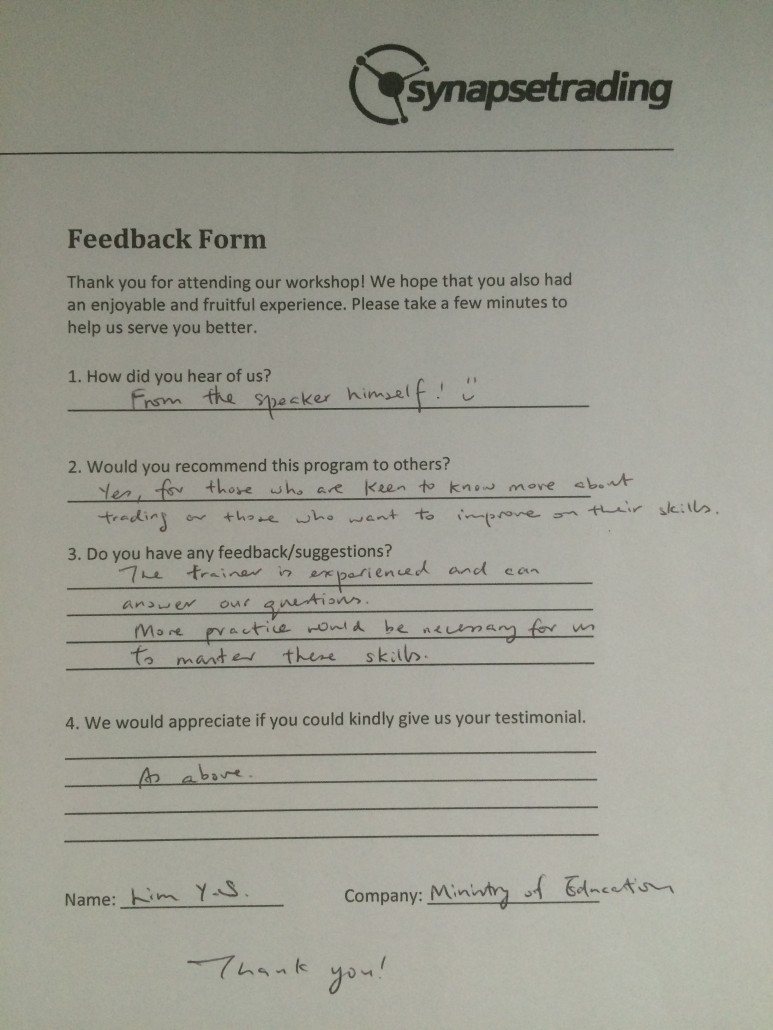 synapsetrading
Feedback Form
Thank you for attending our workshop! We hope that you also had
an enjoyable and fruitful experience. Please take a few minutes to
help us serve you better.
1. How did you hear of us?
From the speaker himself! :)
2. Would you recommend this program to others?
Yes, for those who are keen to know more about
trading or those who want to improve on their skills.
3. Do you have any feedback/suggestions?
The trainer is experienced and can
answer our questions.
More practice would be necessary for us
to master these skills.
4. We would appreciate if you could kindly give us your testimonial.
As above.
Name: Lim Y.S. Company: Ministry of Education
Thank you!